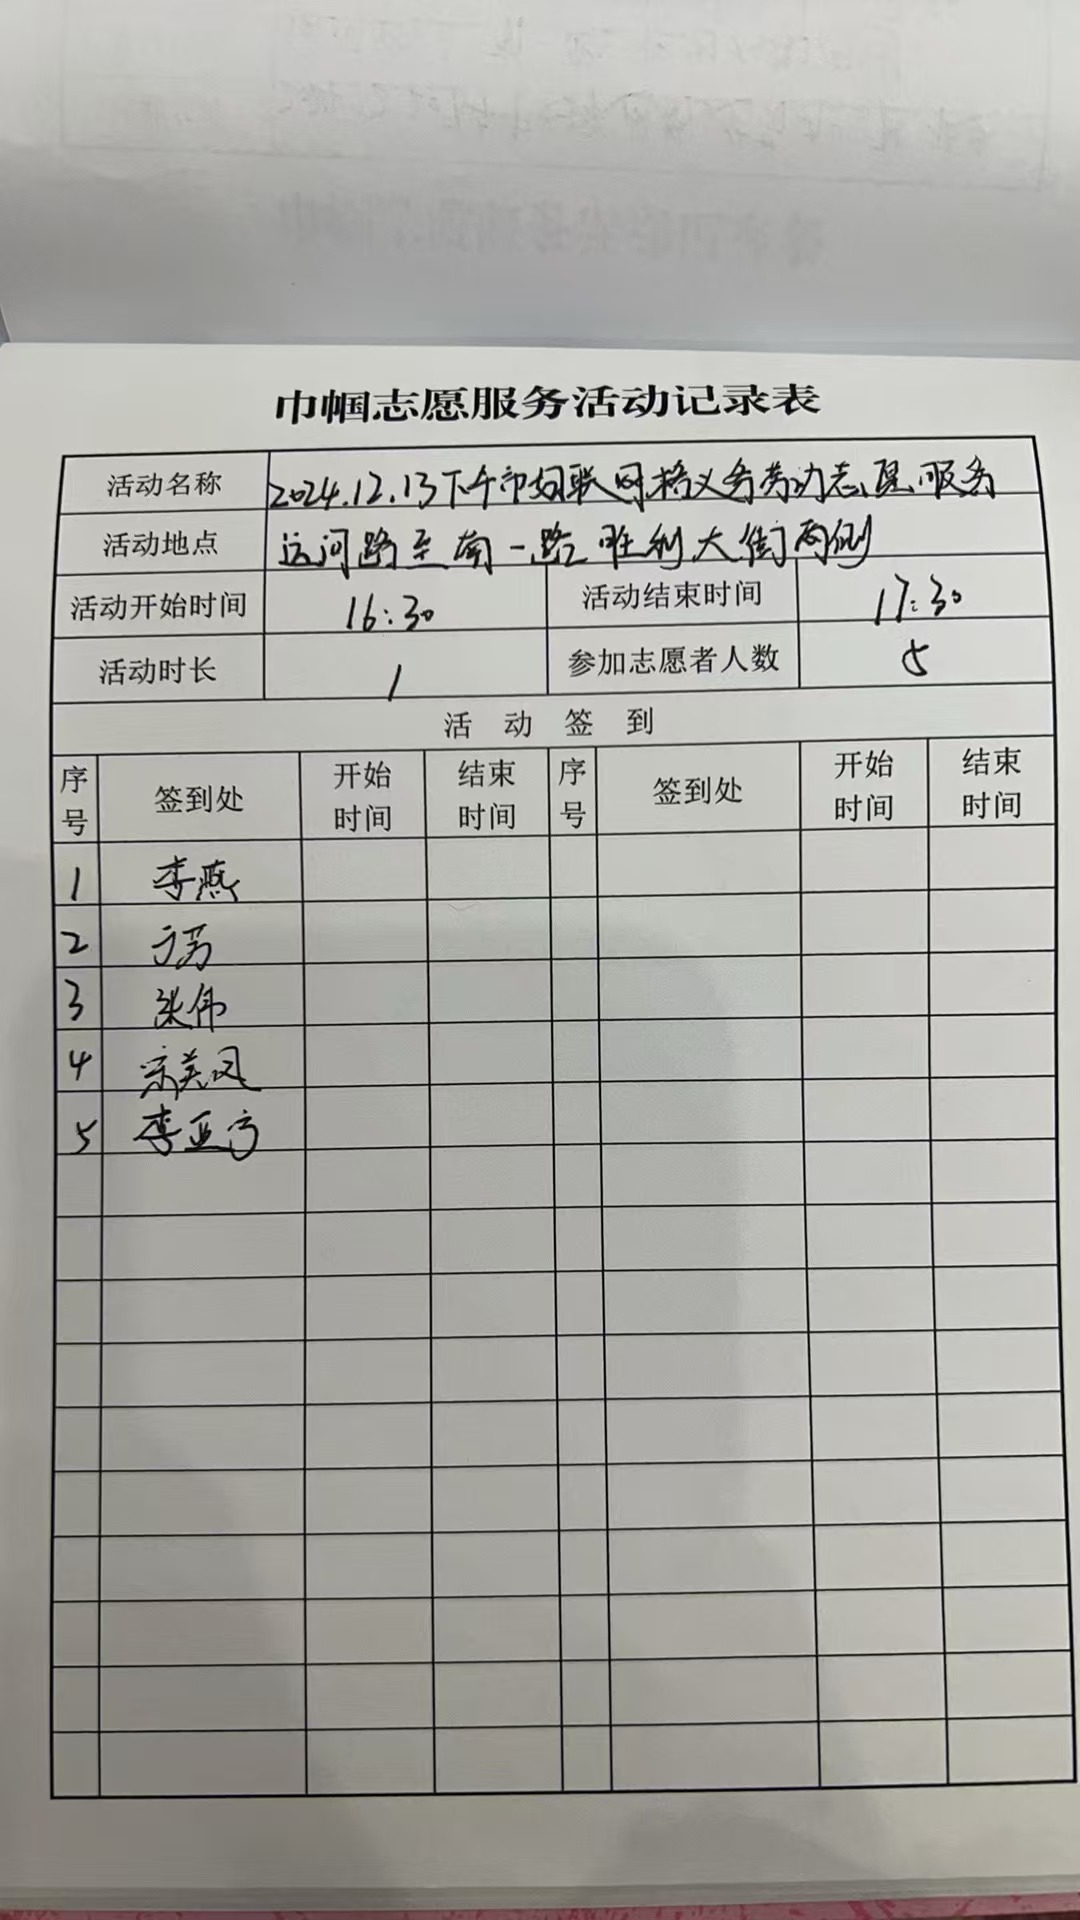 巾帼志愿服务活动记录表
活动名称 2024.12.13下午市妇联网格义务劳动志愿服务
活动地点 运河路至南一路胜利大街两侧
活动开始时间 16:30 活动结束时间 17:30
活动时长 1 参加志愿者人数 5
活动签到
序号 签到处 开始时间 结束时间 序号 签到处 开始时间 结束时间
1 李燕
2 于芳
3 张伟
4 宋美凤
5 李亚方